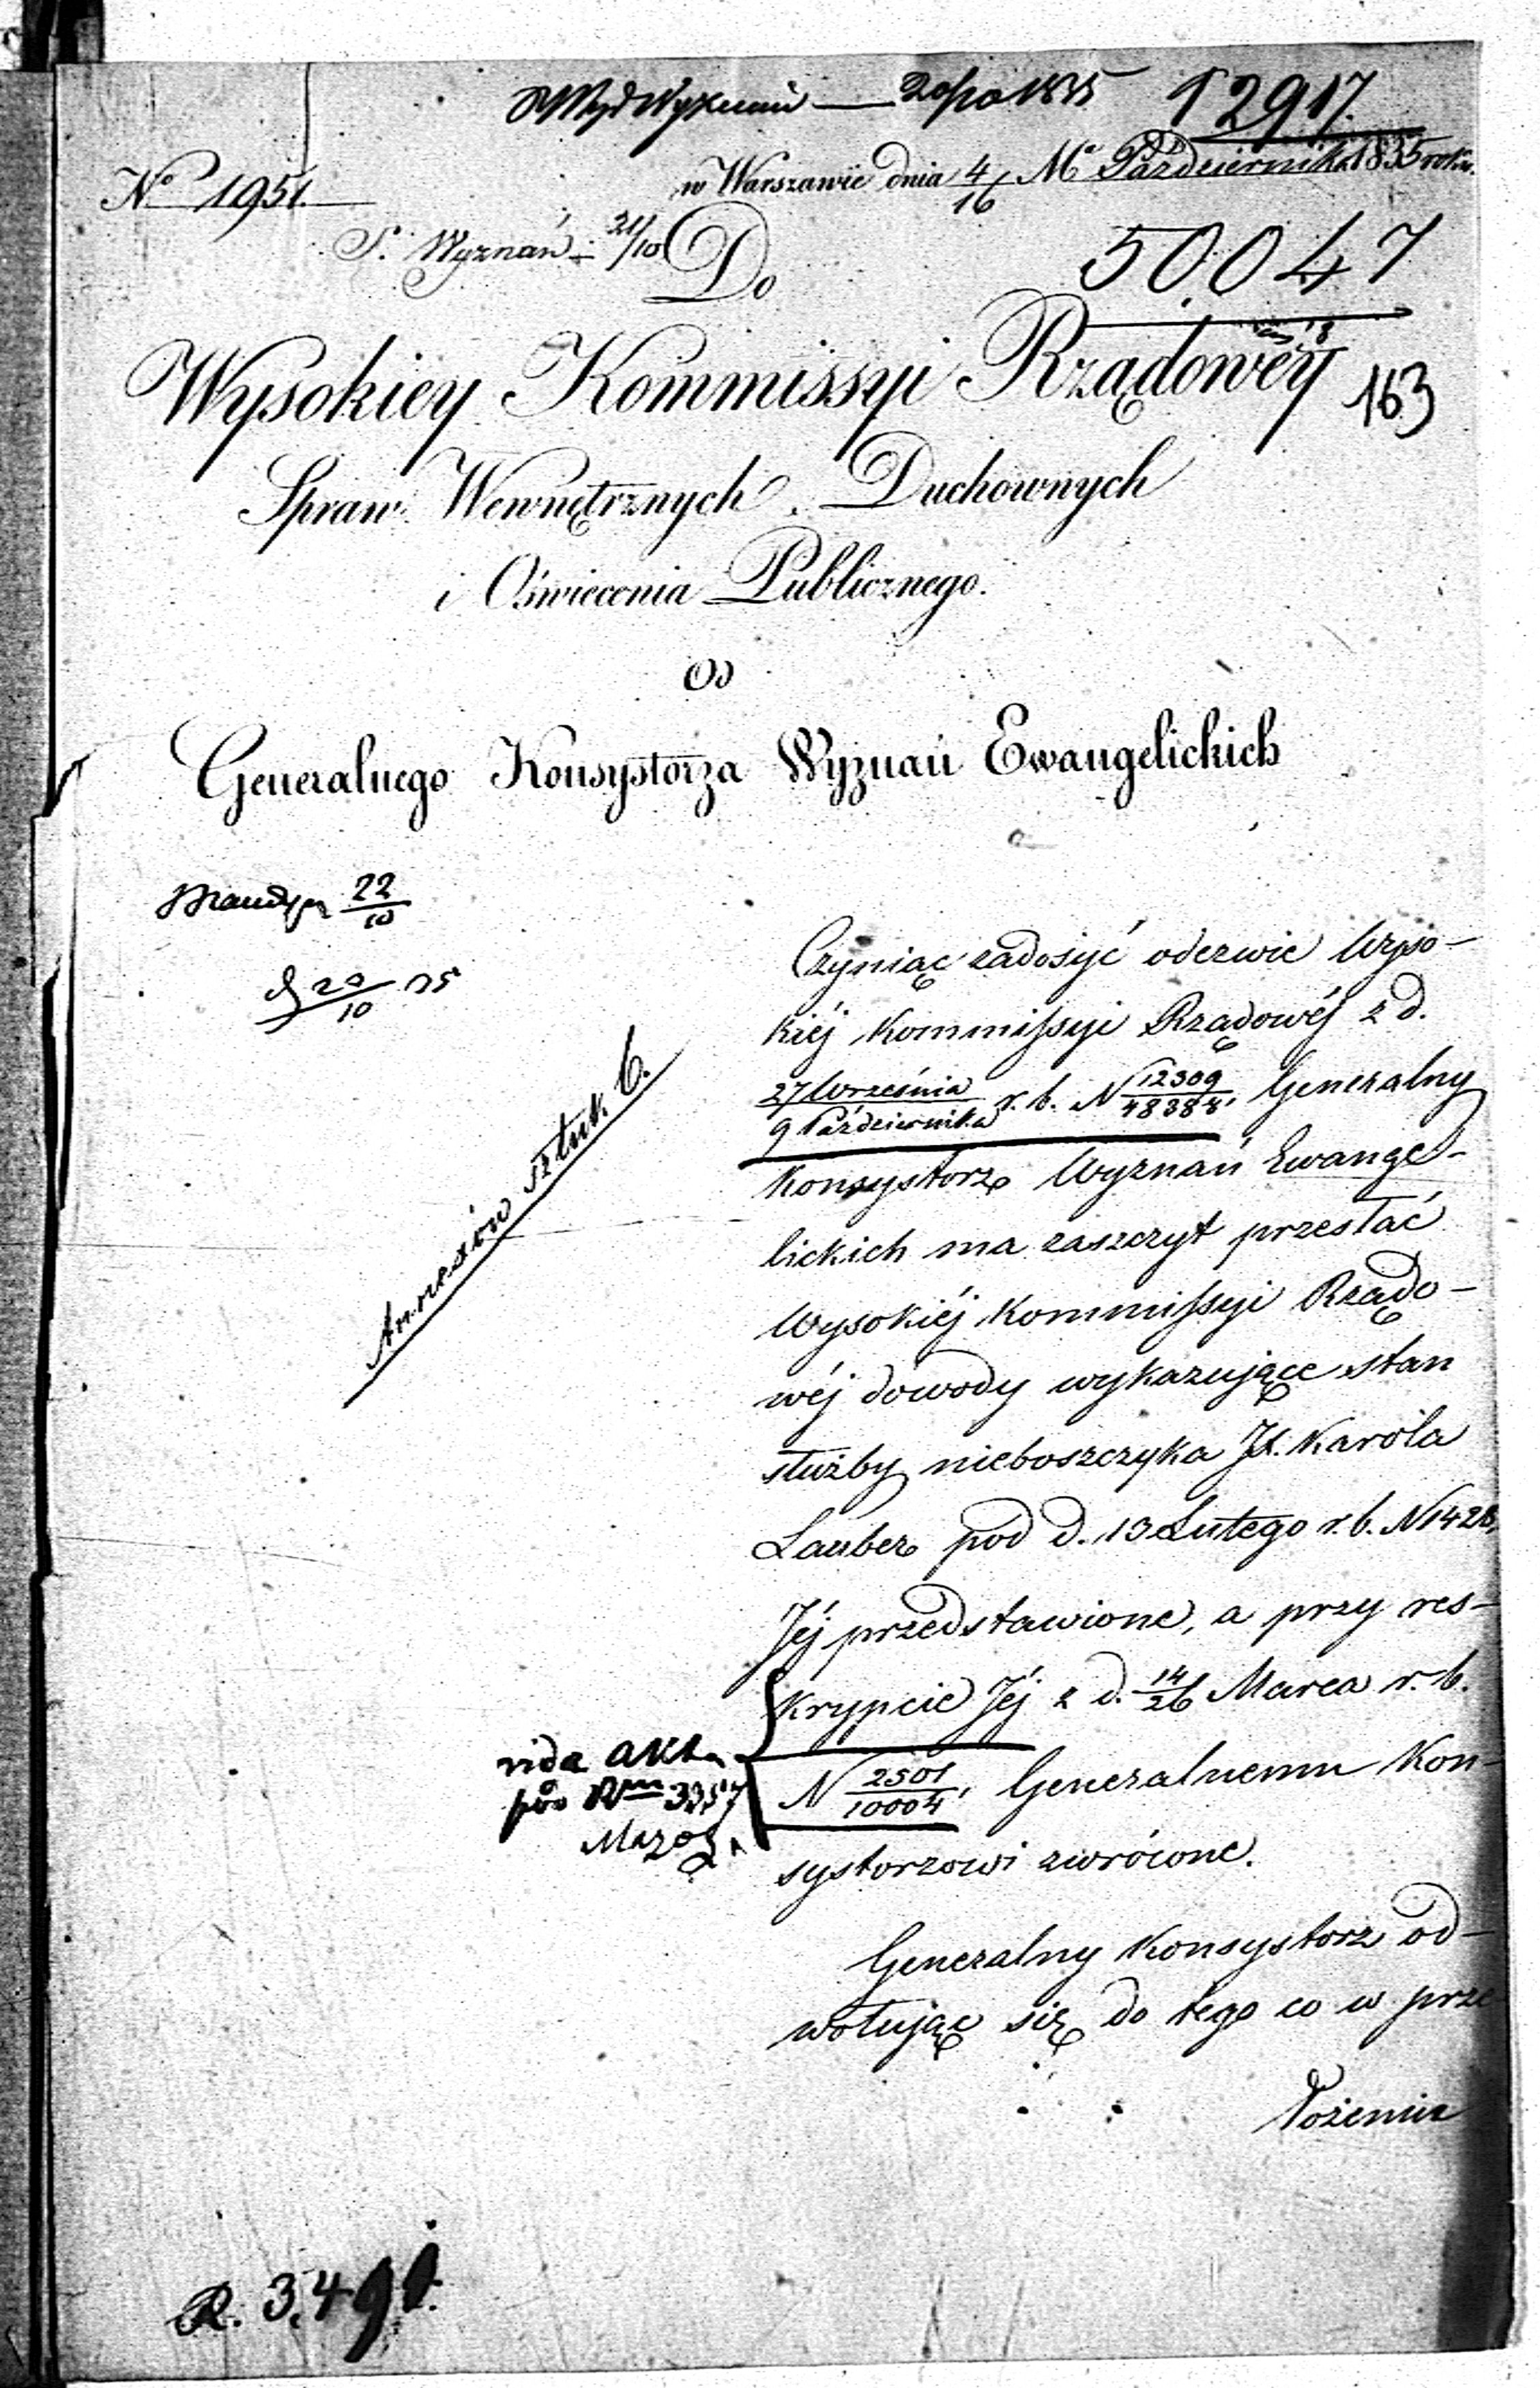 12917.
w Warszawie dnia 4/16 Mca Października 1835 roku.
No 1951.
S. Wyznań 21/10
Do
50047
Wysokiey Kommissyi Rządowey
163
Spraw Wewnętrznych, Duchownych
i Oświecenia Publicznego.
Od
Generalnego Konsystorza Wyznań Ewangelickich
22/10
20/10 35
Annexów sztuk 6.
Czyniąc zadosyć odezwie Wyso-
kiéj Kommissyi Rządowéj z d.
27 Września/9 Października r. b. N 12309/48384, Generalny
Konsystorz Wyznań Ewange-
lickich ma zaszczyt przesłać
Wysokiéj Kommissyi Rządo-
wéj dowody wykazujące stan
służby nieboszczyka X. Karola
Lauber pod d. 13 Lutego r. b. N 1428,
Jéj przedstawione, a przy res-
krypcie Jéj z d. 14/26 Marca r. b.
N 2501/10004, Generalnemu Kon-
systorzowi zwrócone.
vide akta
pod Rm 3357
Generalny Konsystorz od-
wołując się do tego co w prze
łożeniu
R. 3,491.